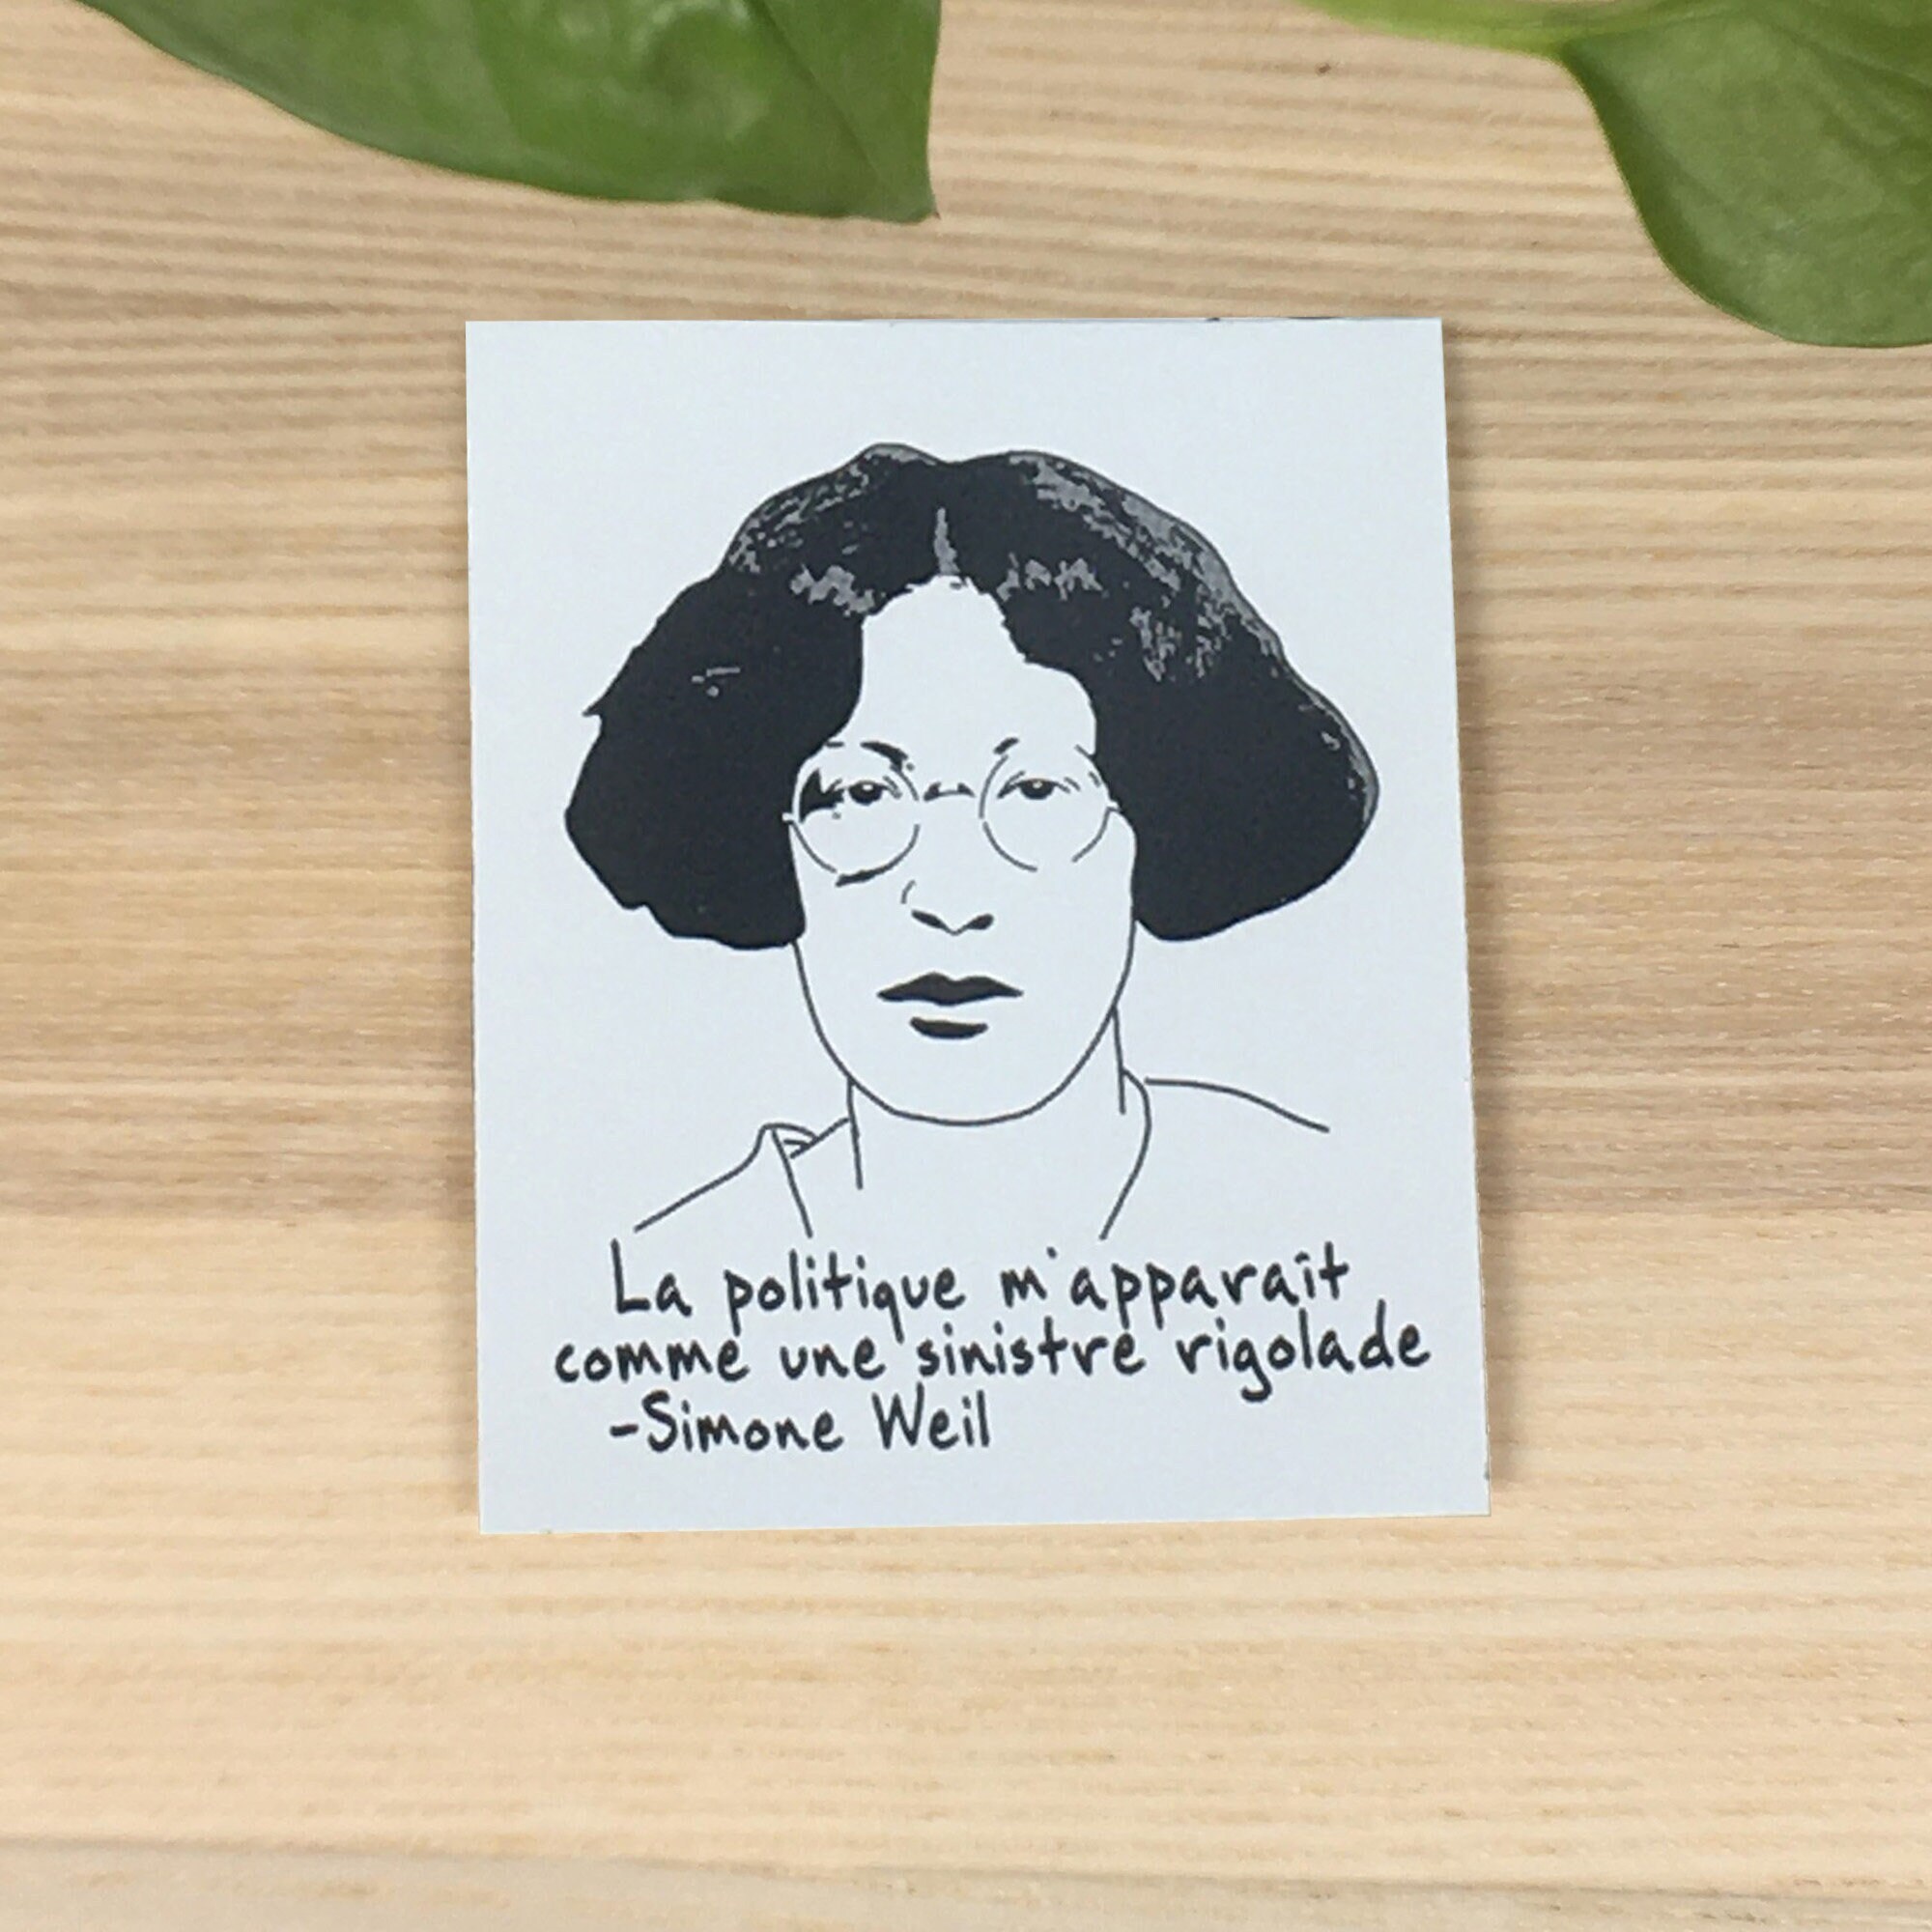 La politique m'apparaît
comme une sinistre rigolade
-Simone Weil